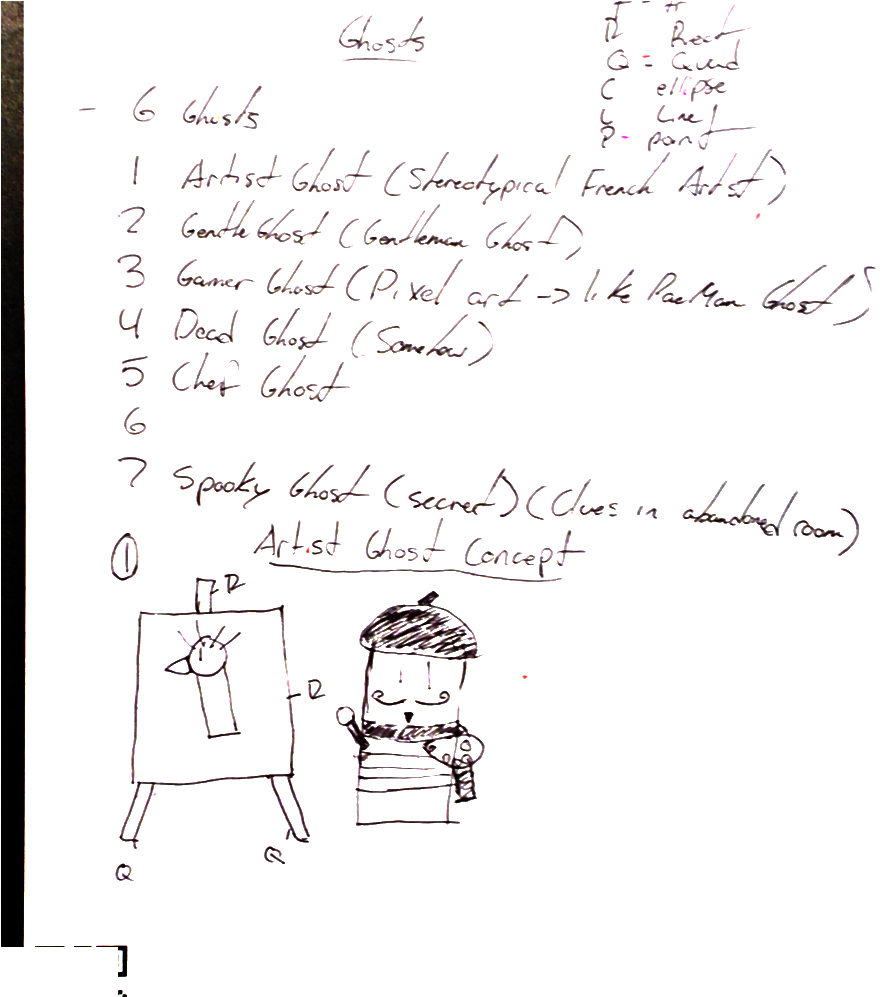 Ghosts
R Rect
Q = Quad
C ellipse
L Line
P - point
- 6 Ghosts
1 Artist Ghost (Stereotypical French Artist)
2 Gentle Ghost (Gentleman Ghost)
3 Gamer Ghost (Pixel art -> like PacMan Ghost)
4 Dead Ghost (Somehow)
5 Chef Ghost
6
7 Spooky Ghost (secret) (Clues in abandoned room)
1 Artist Ghost Concept
R
R
Q Q